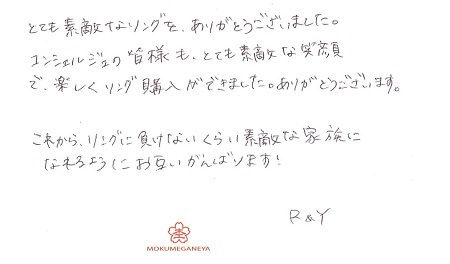 とても素敵なリングを、ありがとうございました。
コンシェルジュの皆様も、とても素敵な笑顔
で、楽しくリング購入ができました。ありがとうございます。
これから、リングに負けないくらい素敵な家族に
なれるようにお互いがんばります！
R&Y
MOKUMEGANEYA